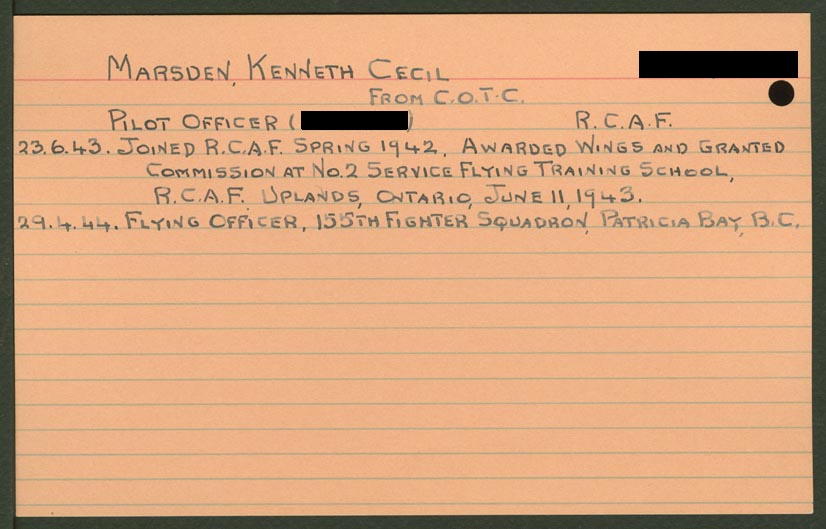 MARSDEN, KENNETH CECIL
FROM C.O.T.C.
PILOT OFFICER ( ) R.C.A.F.
23.6.43. JOINED R.C.A.F. SPRING 1942, AWARDED WINGS AND GRANTED
COMMISSION AT NO.2 SERVICE FLYING TRAINING SCHOOL,
R.C.A.F. UPLANDS, ONTARIO, JUNE 11, 1943.
29.4.44. FLYING OFFICER, 155TH FIGHTER SQUADRON, PATRICIA BAY, B.C.